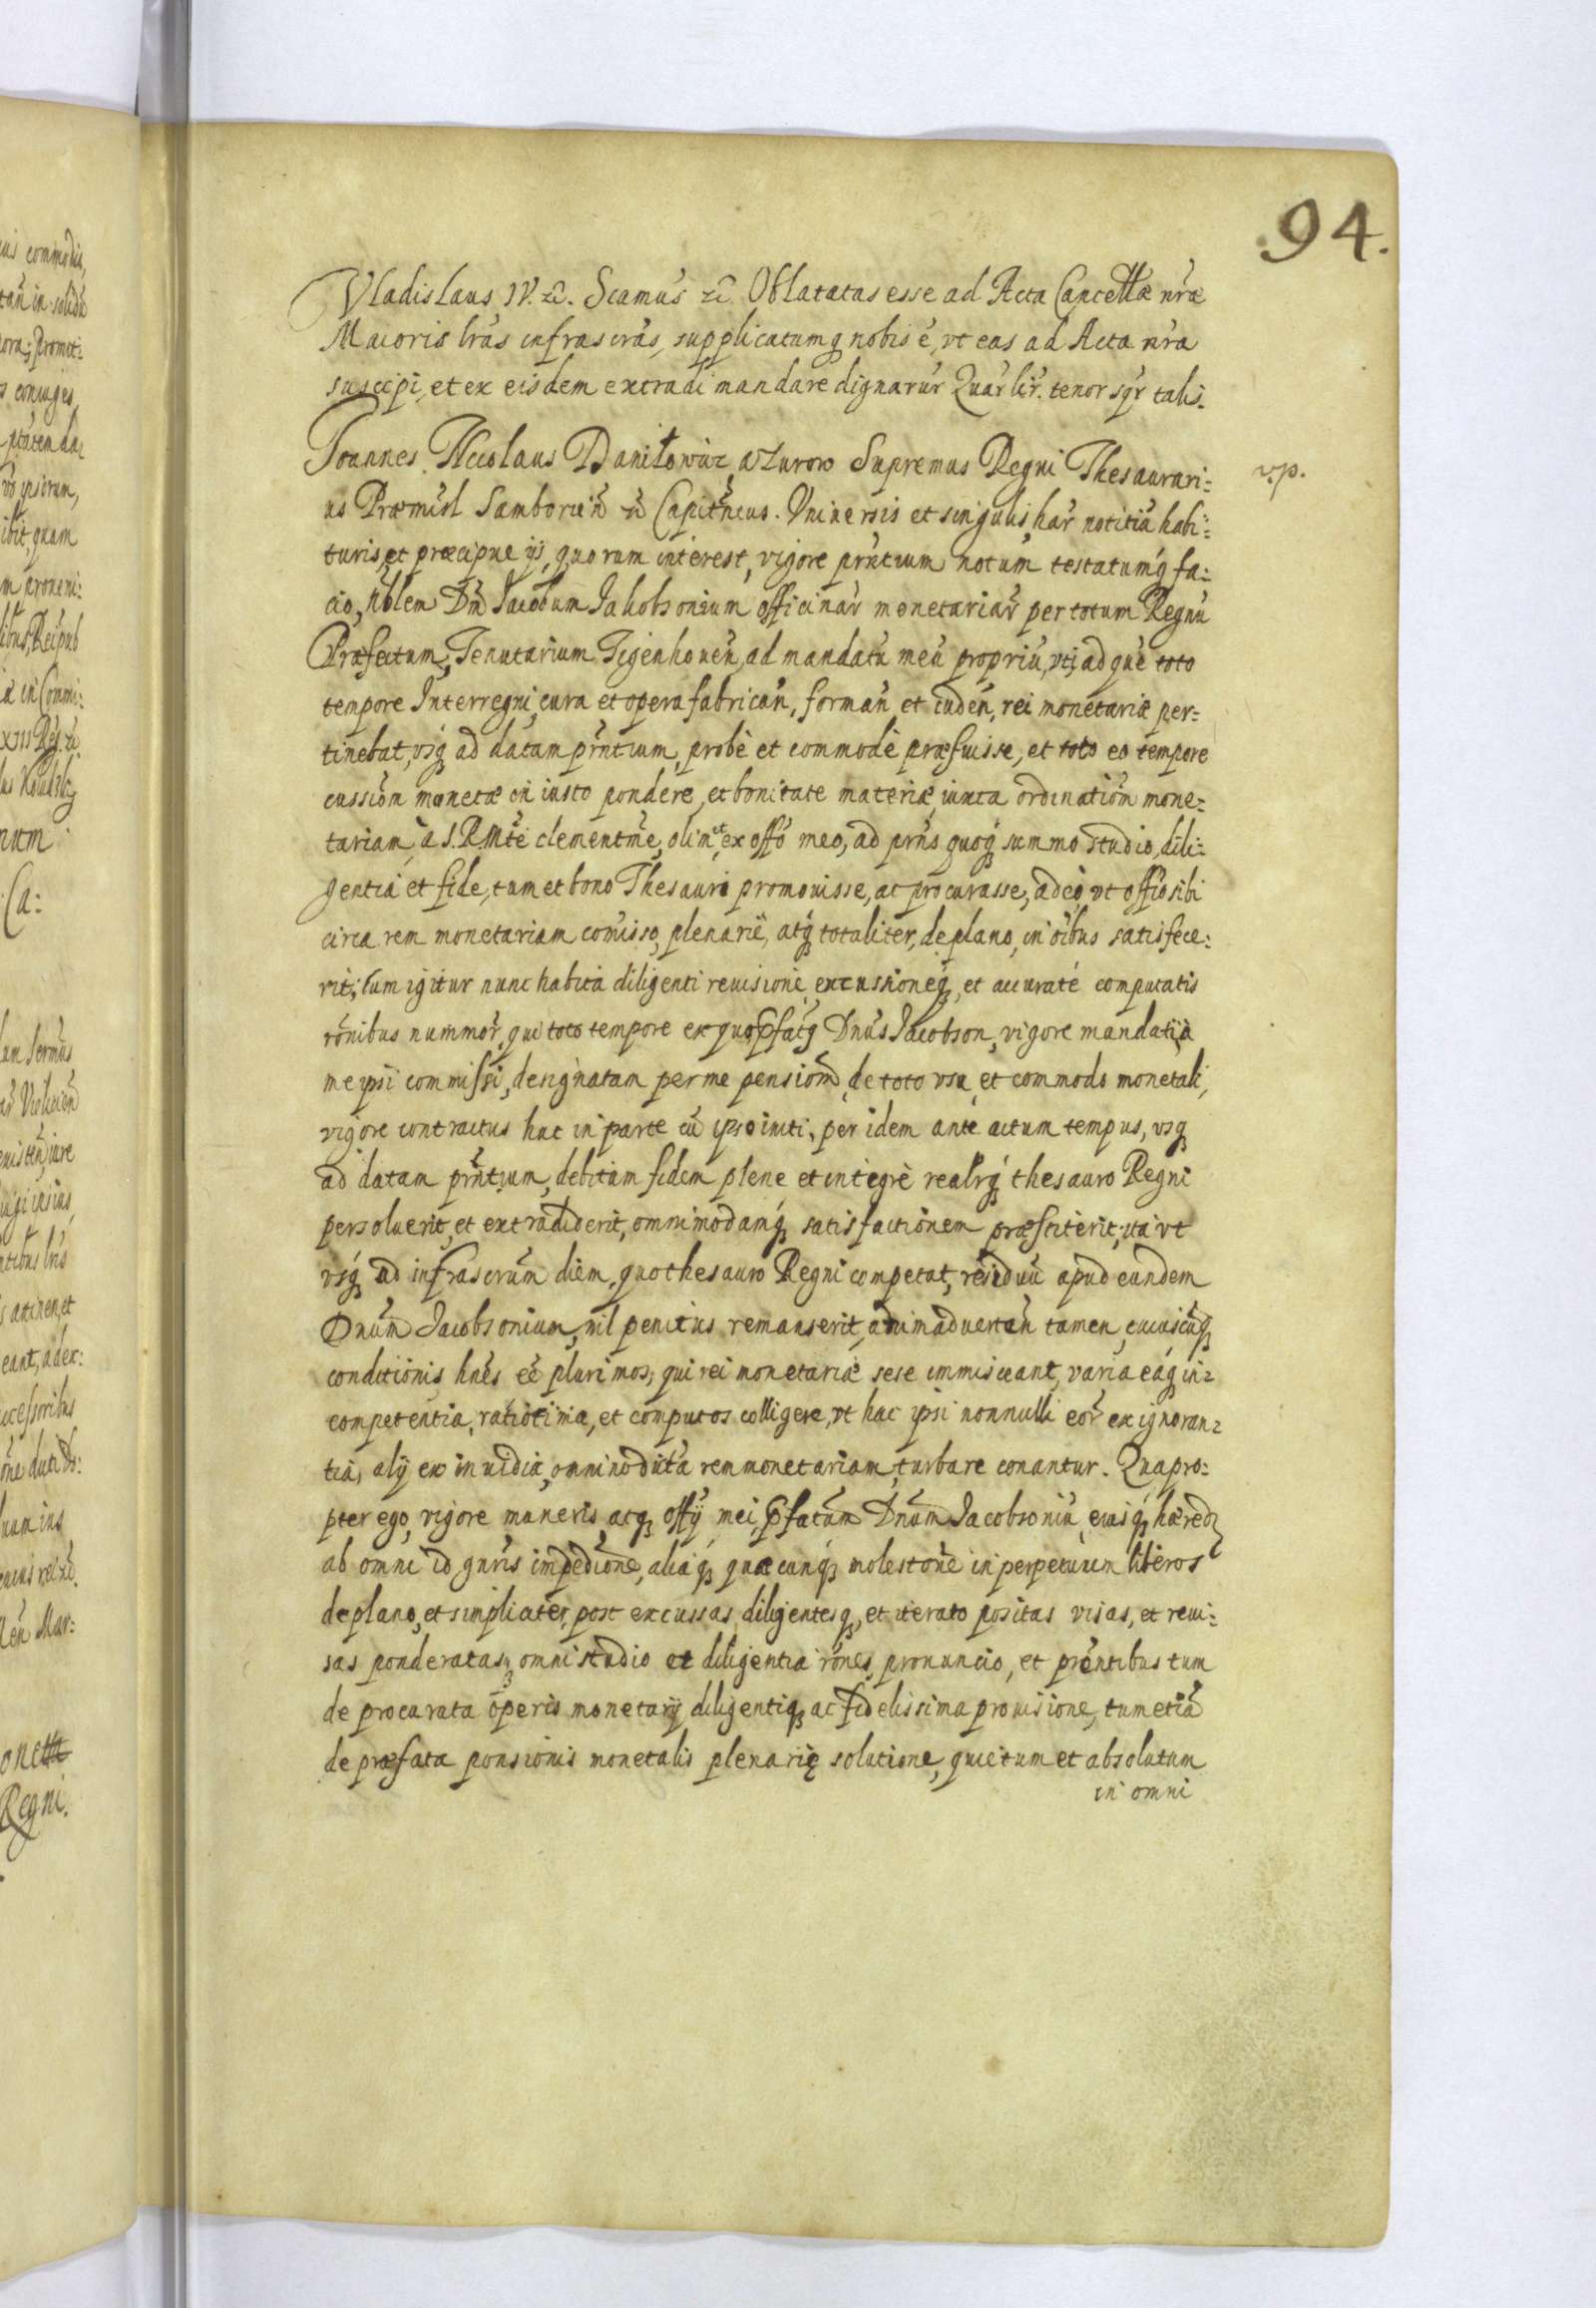 94.
Vladislaus IV. etc. Scamus etc. Oblatatas esse ad Acta Cancellæ nræ
Maioris lras infrascras, supplicatumq nobis e, vt eas ad Acta nra
suscipi, et ex eisdem extradi mandare dignarur Quar lir. tenor sqr talis.
Joannes Nicolaus Daniłowic a Zurow Supremus Regni Thesaurari:
v.p.
us Præmisl Samborien etc Capitneus. Vniversis et singulis, har notitiã habi:
turis, et præcipue ijs, quorum interest, vigore prntium notum testatumq fa:
cio, Nblem Dn Jacobum Jakobsonium officinar monetariar per totum Regnũ
Præfectum, Tenutarium Tigenhouen, ad mandatũ meũ propriũ, vti ad quẽ toto
tempore Interregni, cura et opera fabrican, forman et cuden, rei monetariæ per:
tinebat, vsq ad datam prntium, probè et commodè præfuisse, et toto eo tempore
cussiõn monetæ in iusto pondere, et bonitate materiæ, iuxta ordinatiõn mone:
tariam, à S.R.Mte clementme, olim et ex offo meo, ad prns quoq summo studio, dili:
gentia et fide, tum et bono Thesauri promouisse, ac procurasse, adeò, vt offo sibi
circa rem monetariam comisso, plenariè, atq totaliter, de plano, in oibus satisfece:
rit; Cum igitur nunc habita diligenti reuisione excussioneq, et accuratè computatis
ronibus nummor, qui toto tempore ex quo pfatq Dnus Jacobson, vigore mandati à
me ipsi commissi, designatam per me pensiom, de toto vsu, et commodo monetali,
vigore contractus hac in parte cũ ipso initi, per idem ante actum tempus, vsq
ad datam prntium, debitam fidem plene et integrè realrq thesauro Regni
persoluerit, et extradiderit, omnimodamq satisfactionem præstiterit, ita vt
vsq ad infrascrum diem, quo thesauro Regni competat, residuũ apud eundem
Dnum Jacobsonium, nil penitus remanserit, animaduertan tamen, cuiuscũq
conditionis hnes eẽ plurimos, qui rei monetariæ sese immisceant, varia eaq in:
competentia, ratiotinia, et computos colligere, vt hac ipsi nonnulli eor ex ignoran:
tia, alij ex inuidia, omnino dicta rem monetariam, turbare conantur. Quapro:
pter ego, vigore muneris, atq offij mei, pfatum Dnum Jacobsoniũ, eiusq hæred
ab omni id gnris impedione, aliaq quacunq molestone in perpetuum liberos
de plano, et simpliciter, post excussas, diligentesq, et iterato positas visas, et reui:
sas ponderatas, omni studio et diligentia rones, pronuncio, et prentibus tum
de procurata operis monetarij diligentiq, ac fidelissima prouisione, tum etiã
de præfata pensionis monetalis plenariè solutione, quietum et absolutum
in omni